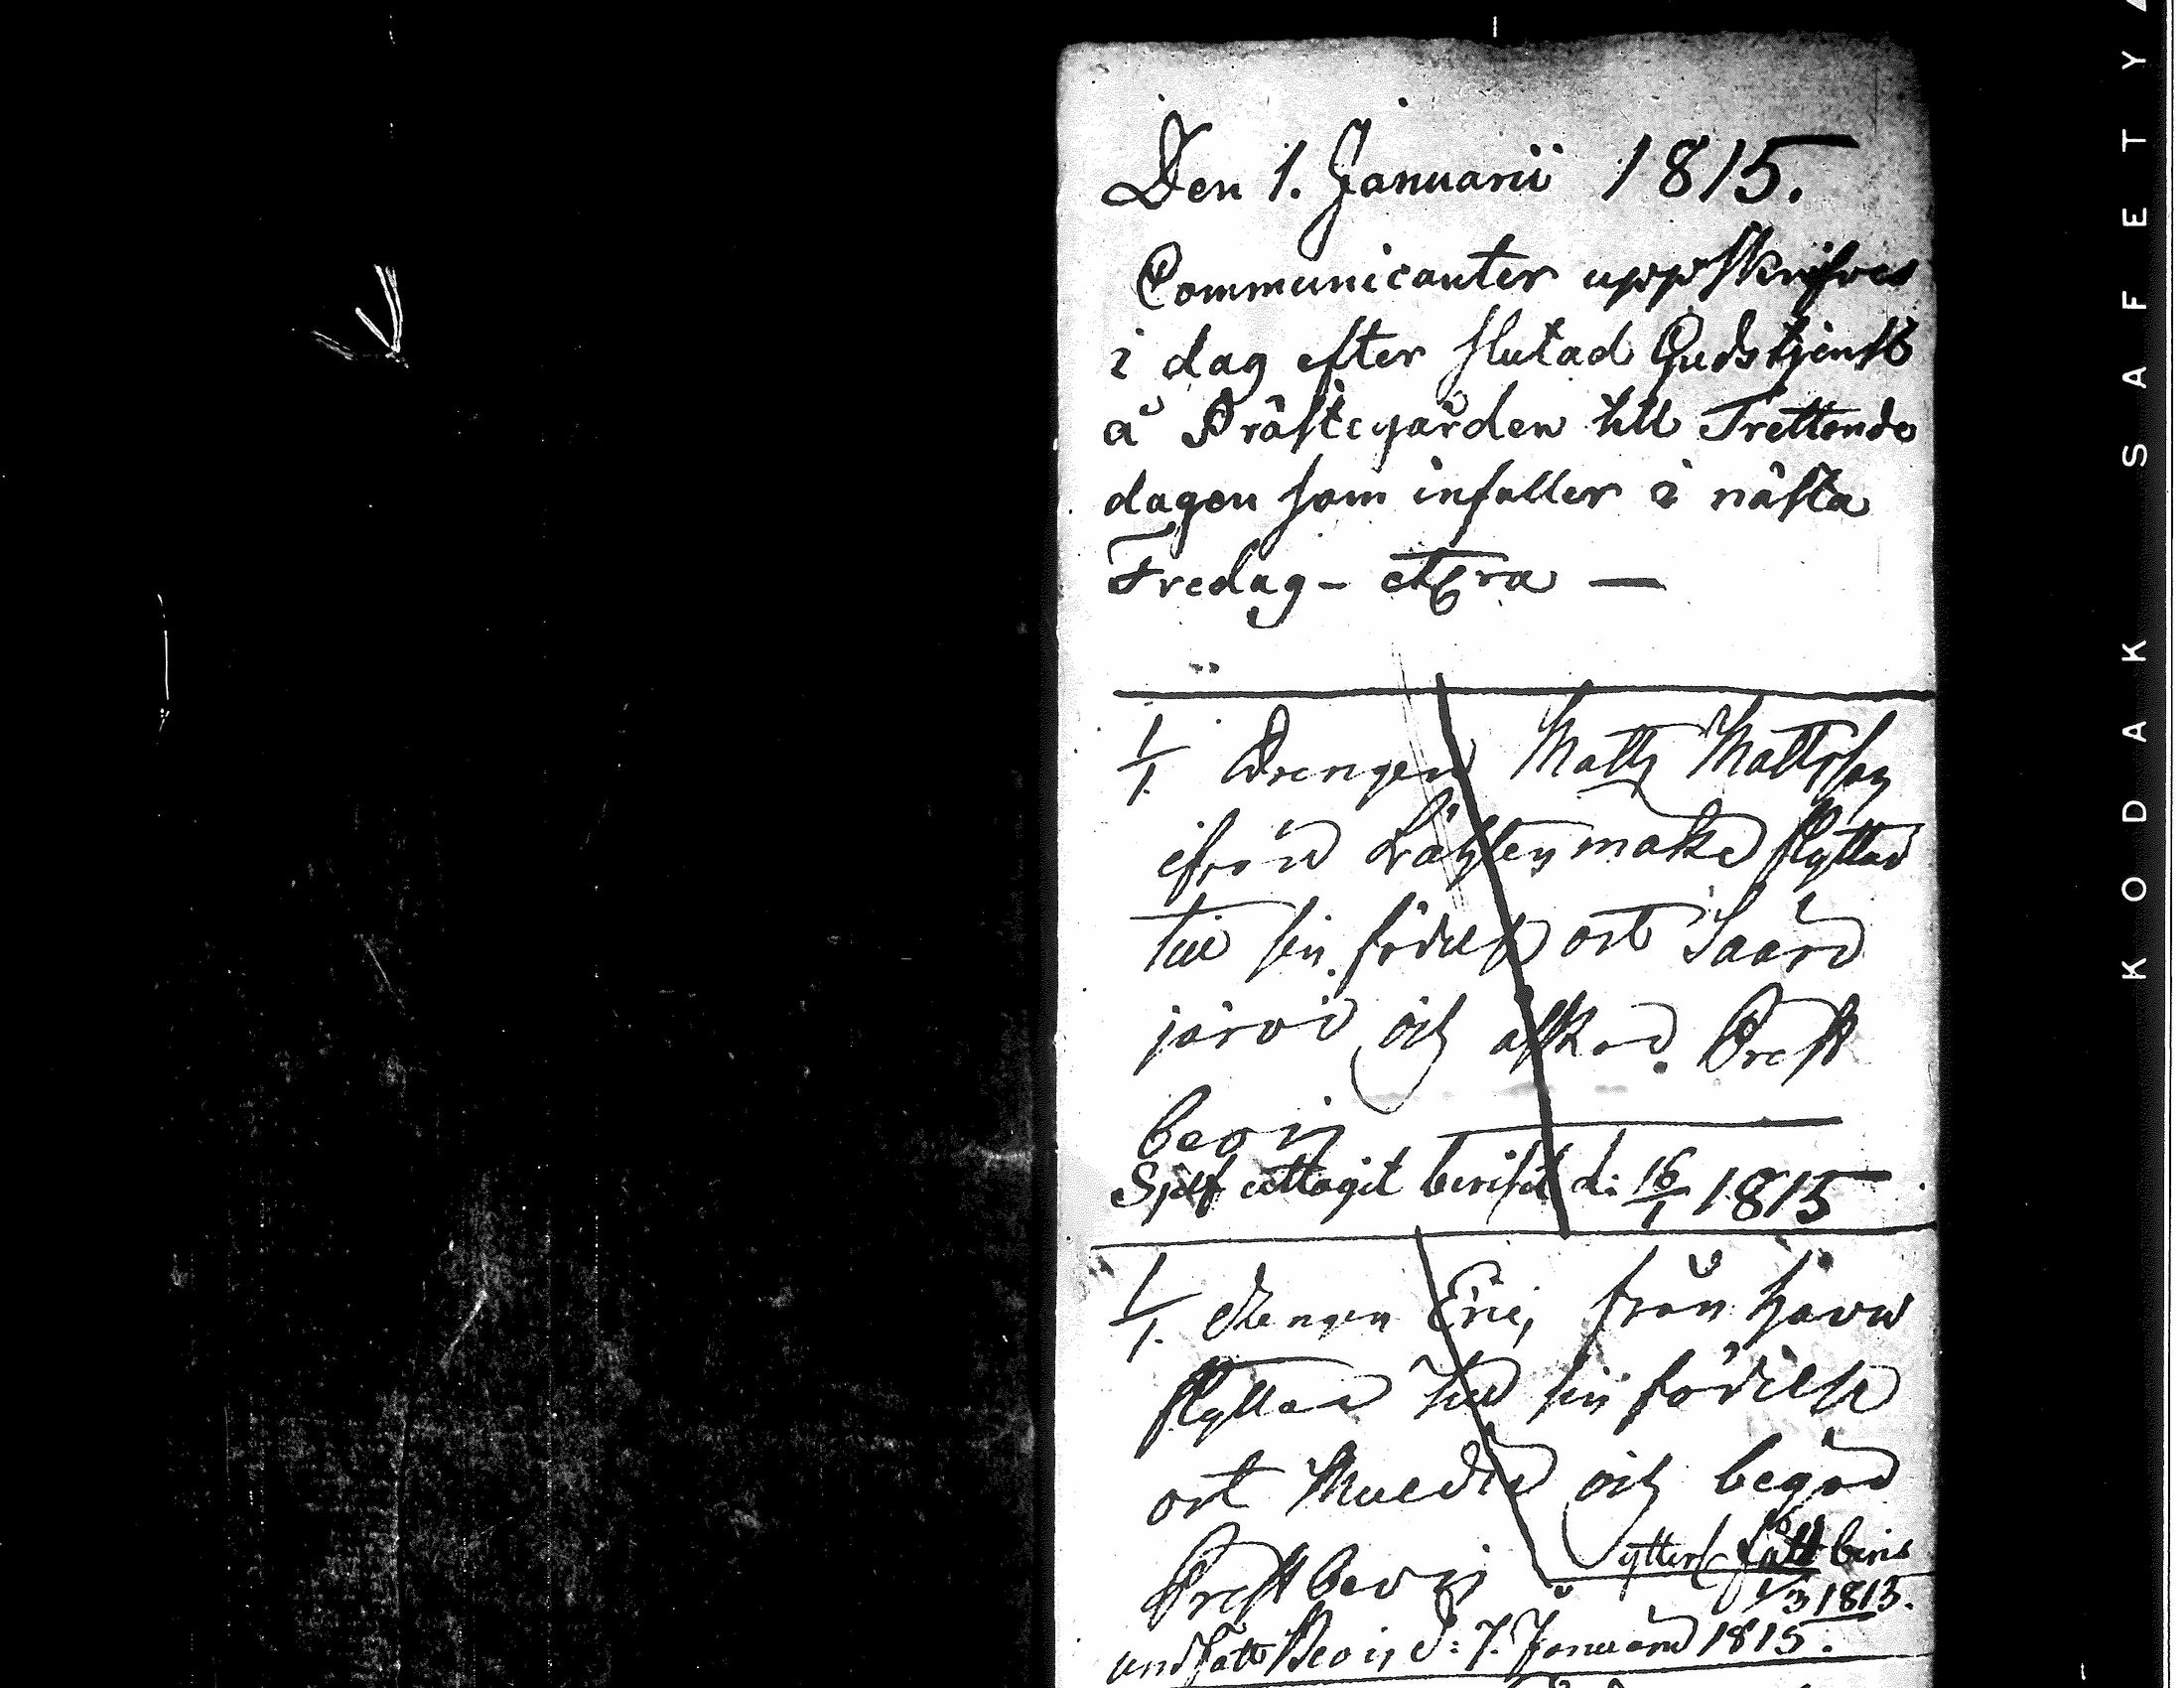 Den 1. Januarii 1815.
Communicanter uppskrifves
i dag efter slutad Gudstjenst
å Prästegården till Trettende
dagen som infaller i nästa
Fredag - etCra —
1/1. Drengen Matts Mattsson
ifrån flyttar
till sin födelse ort Saari
järvi och Prest
bevis
Sjelf uttagit beviset d: 16/1 1815
1/1. drengen Eric, från
flyttar till sin födelse
ort och begär
Prestbevis ytterl. fått bevis
1/3 1813.
undfått Bevis d: 7. Januarii 1815.
KODAK SAFETY